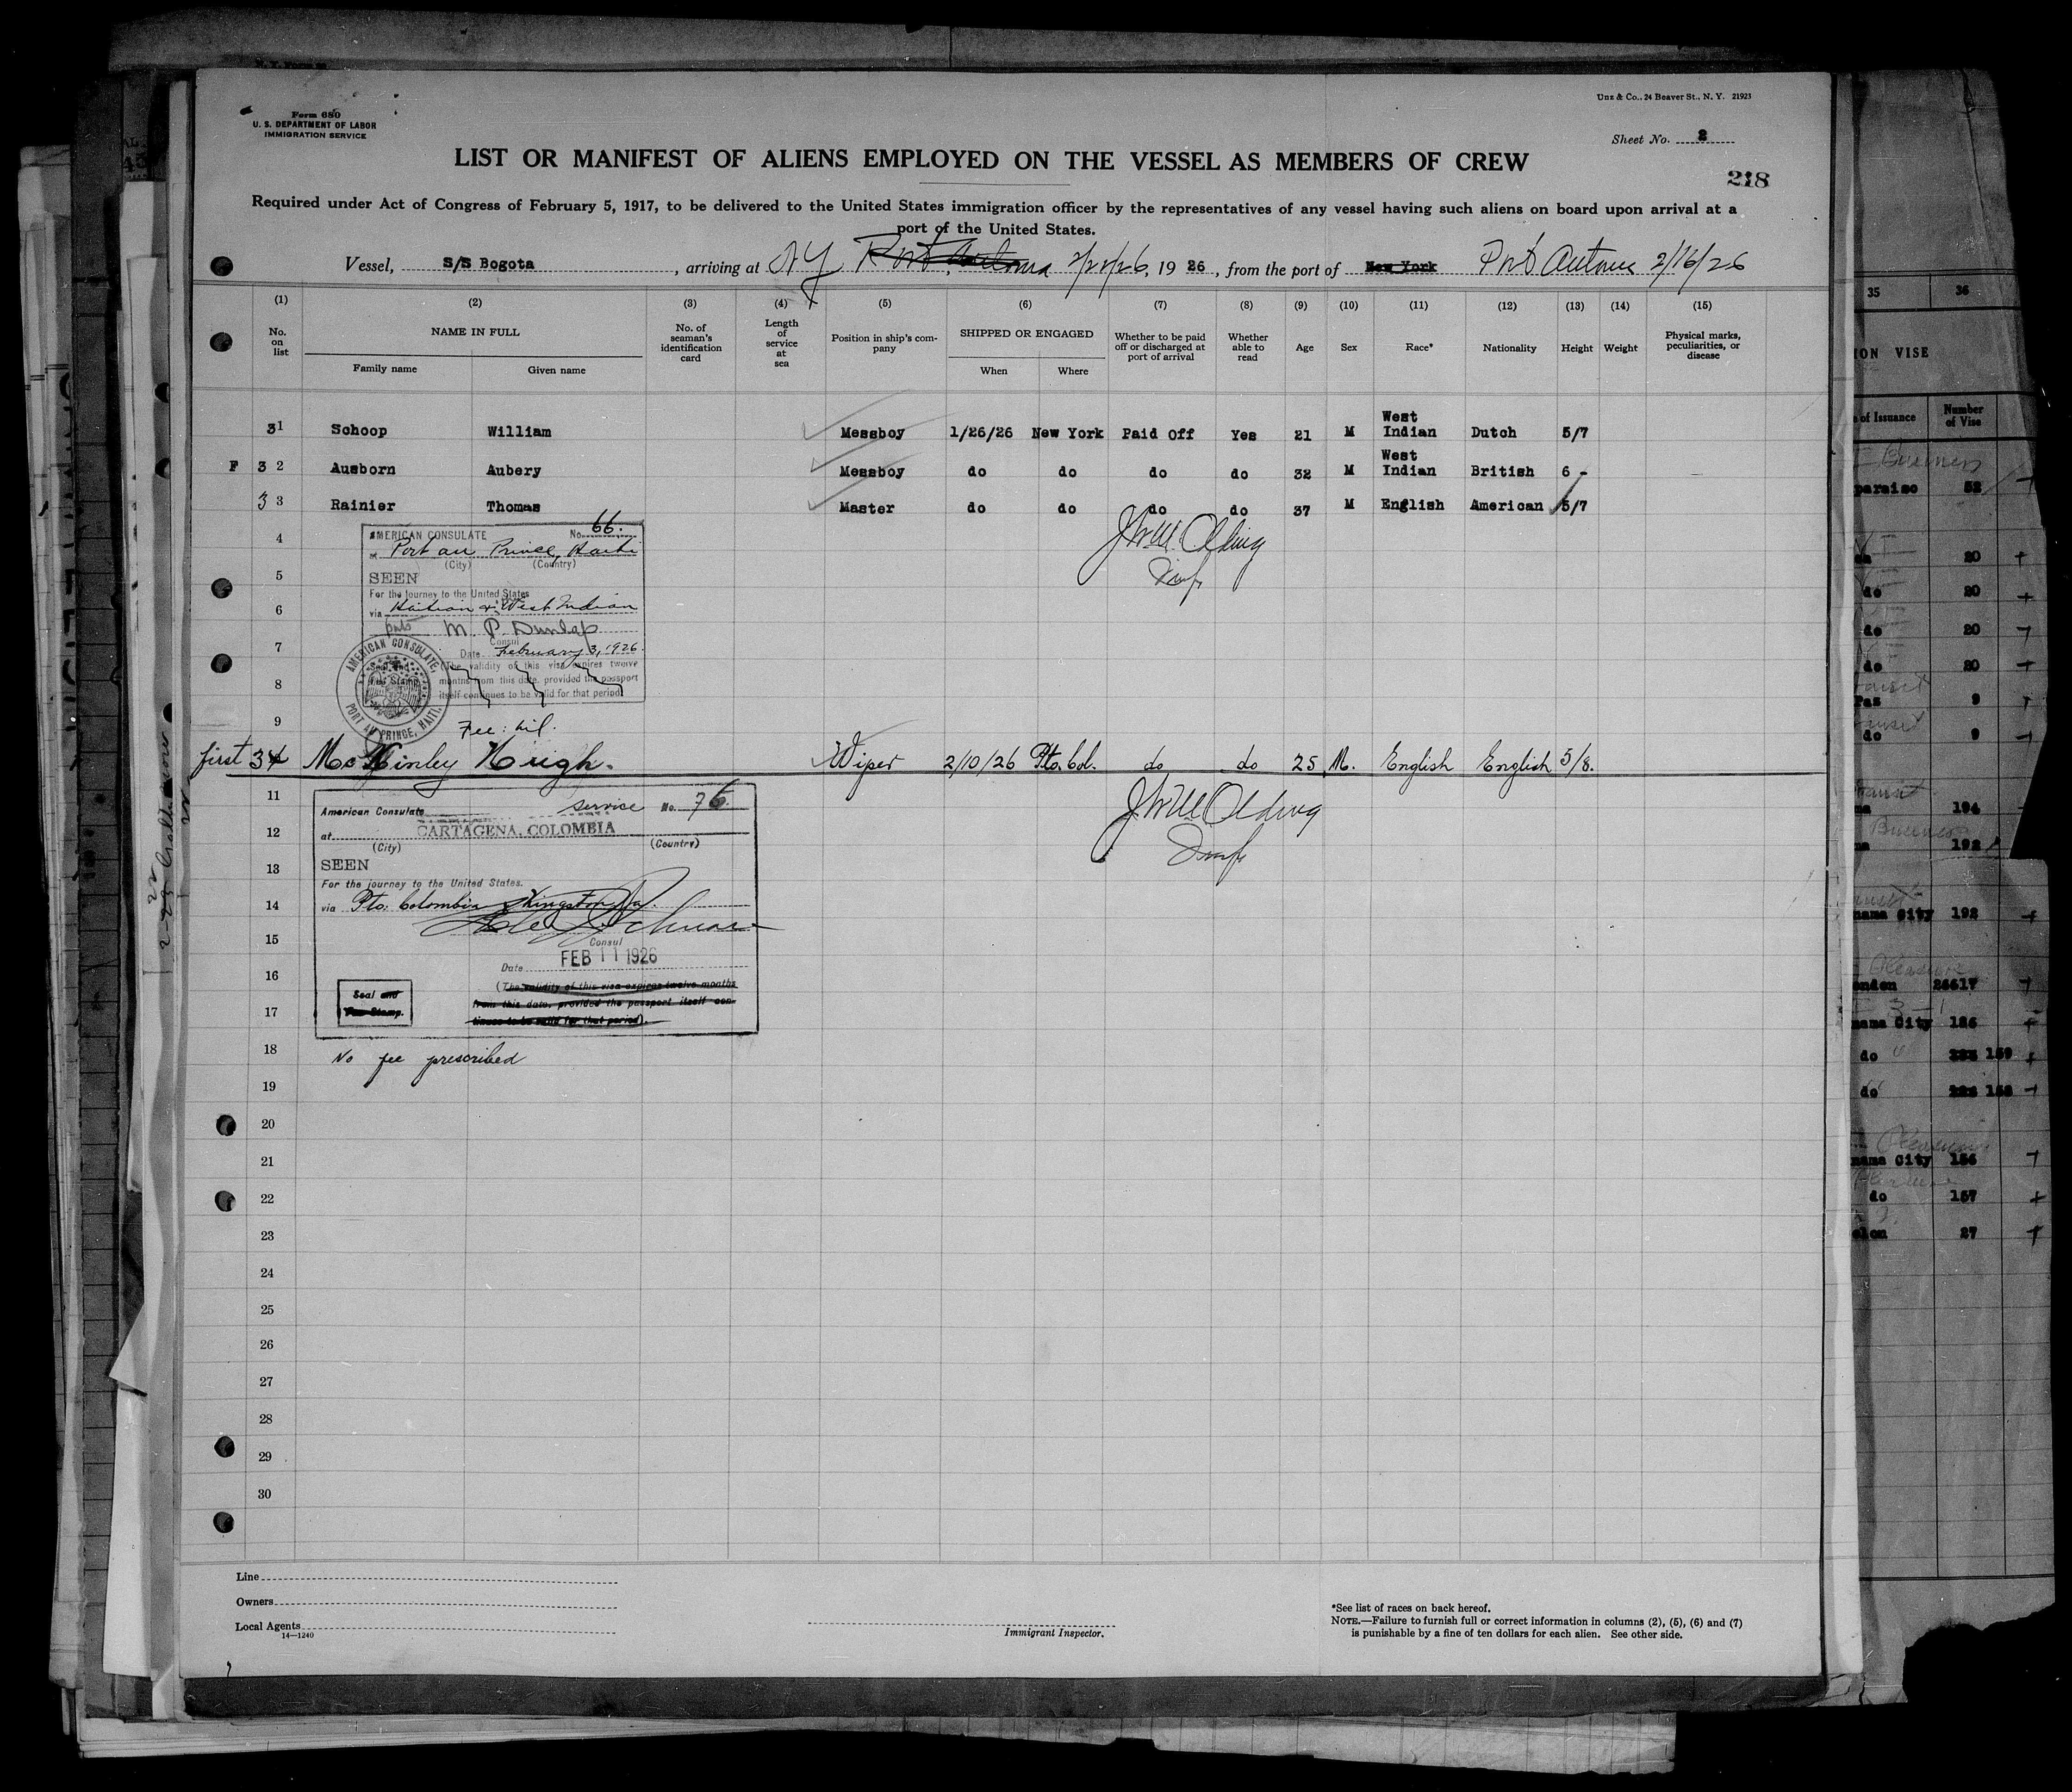 Form 680
U. S. DEPARTMENT OF LABOR
IMMIGRATION SERVICE
Unz & Co., 24 Beaver St., N. Y. 21923
Sheet No. 2
LIST OR MANIFEST OF ALIENS EMPLOYED ON THE VESSEL AS MEMBERS OF CREW
218
Required under Act of Congress of February 5, 1917, to be delivered to the United States immigration officer by the representatives of any vessel having such aliens on board upon arrival at a
port of the United States.
Vessel, S/S Bogota, arriving at NY Port 2/21/26, 19 26, from the port of New York Port Antonio 2/16/26
(1) (2) (3) (4) (5) (6) (7) (8) (9) (10) (11) (12) (13) (14) (15)
No. on list NAME IN FULL No. of seaman's identification card Length of service at sea Position in ship's company SHIPPED OR ENGAGED Whether to be paid off or discharged at port of arrival Whether able to read Age Sex Race* Nationality Height Weight Physical marks, peculiarities, or disease
Family name Given name When Where
31 Schoop William Messboy 1/26/26 New York Paid Off Yes 21 M West Indian Dutch 5/7
F 32 Ausborn Aubery Messboy do do do do 32 M West Indian British 6 -
33 Rainier Thomas Master do do do do 37 M English American 5/7
4
AMERICAN CONSULATE No. 66.
at Port au Prince, Haiti
(City) (Country)
5
SEEN
For the journey to the United States
6
via Haitian & West Indian
ports M. P. Dunlap
7
Consul
Date February 3, 1926.
(The validity of this visa expires twelve
8
months from this date, provided the passport
itself continues to be valid for that period)
AMERICAN CONSULATE, PORT AU PRINCE, HAITI.
9
Fee: nil.
first 34 McKinley Hugh. Wiper 2/10/26 Pto. Col. do do 25 M. English English 5/8.
11
American Consulate service No. 76.
12
at CARTAGENA, COLOMBIA
(City) (Country)
13
SEEN
For the journey to the United States.
14
via Pto. Colombia Kingston Ja.
15
Consul
Date FEB 11 1926
16
(The validity of this visa expires twelve months
from this date, provided the passport itself con-
tinues to be valid for that period).
Seal and
Fee Stamp.
17
18
No fee prescribed
19
20
21
22
23
24
25
26
27
28
29
30
Line
Owners
Local Agents
14—1240
Immigrant Inspector.
*See list of races on back hereof.
NOTE.—Failure to furnish full or correct information in columns (2), (5), (6) and (7)
is punishable by a fine of ten dollars for each alien. See other side.
35 36
ION VISE
of Issuance Number of Vise
Business
paraiso 52
20
do 20
do 20
do 20
9
do 9
194
Business
192
nama City 192
26617
nama City 186
do 159
do 158
nama City 156
do 157
27